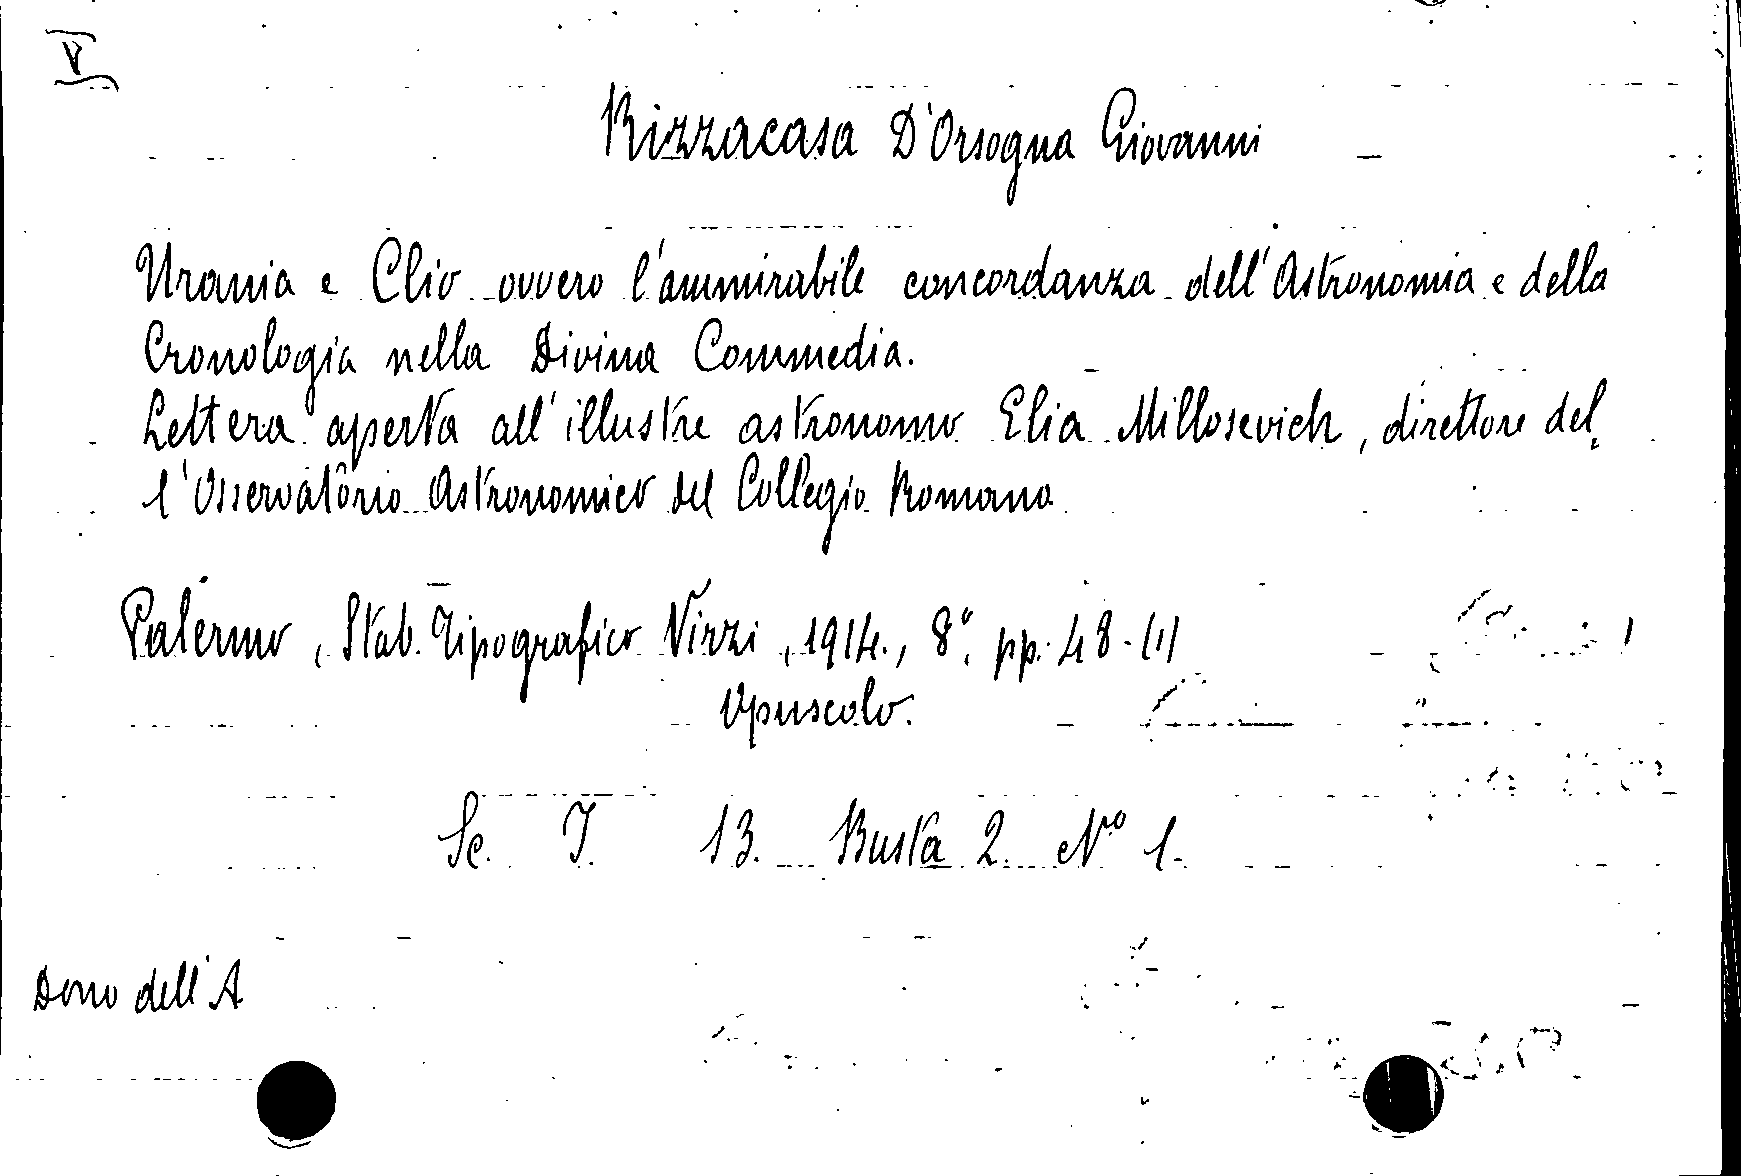 V
Rizzacasa D'Orsogna Giovanni
Urania e Clio ovvero l'ammirabile concordanza dell'Astronomia e della
Cronologia nella Divina Commedia.
Lettera aperta all'illustre astronomo Elia Millosevich, direttore del
l'Osservatorio Astronomico del Collegio Romano
Palermo, Stab. Tipografico Virzi, 1914., 8°. pp. 48-(1)
Opuscolo.
Sc. I. 13. Busta 2. N° 1.
Dono dell'A